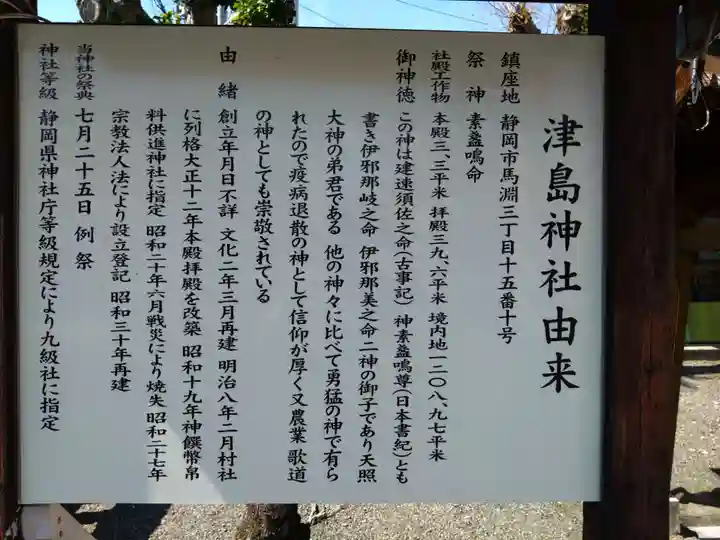 津島神社由来
鎮座地 静岡市馬淵三丁目十五番十号
祭神 素盞鳴命
社殿工作物 本殿三、三平米 拝殿三九、六平米 境内地一二〇八、九七平米
御神徳 この神は建速須佐之命(古事記)神素盞鳴尊(日本書紀)とも
書き伊邪那岐之命 伊邪那美之命 二神の御子であり天照
大神の弟君である 他の神々に比べて勇猛の神で有ら
れたので疫病退散の神として信仰が厚く又農業 歌道
の神としても崇敬されている
由緒 創立年月日不詳 文化二年三月再建 明治八年二月村社
に列格大正十二年本殿拝殿を改築 昭和十九年神饌幣帛
料供進神社に指定 昭和二十年六月戦災により焼失 昭和二十七年
宗教法人法により設立登記 昭和三十年再建
当神社の祭典 七月二十五日 例祭
神社等級 静岡県神社庁等級規定により九級社に指定